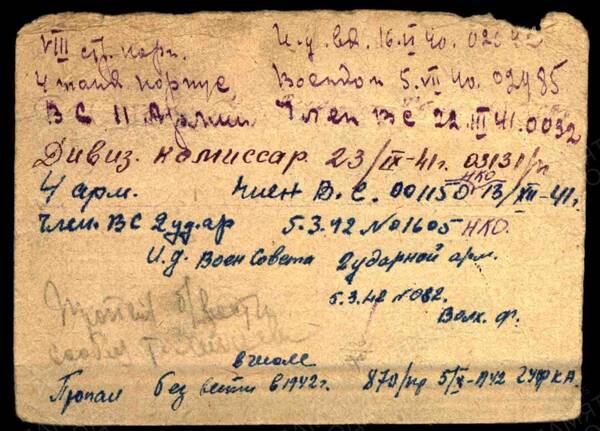 VIII стр. корп. И.д. вк. 16.VI 40. 02642
4 танк корпус. Военком 5.VII 40. 02985
ВС 11 Армии Член ВС 22.III 41. 0032
Дивиз. комиссар 23/IX-41г. 03131/п
4 арм. Член В.С. 001150 НКО 13/XII-41г.
Член. ВС 2 удар 5.3.42 № 01605 НКО.
И.д. Воен Совета 2 ударной арм.
5.3.42 № 082.
Волх. ф.
Пропал б/вести
в июле
Пропал без вести в 1942г. 870/пр 5/X-1942 ГУФКА.